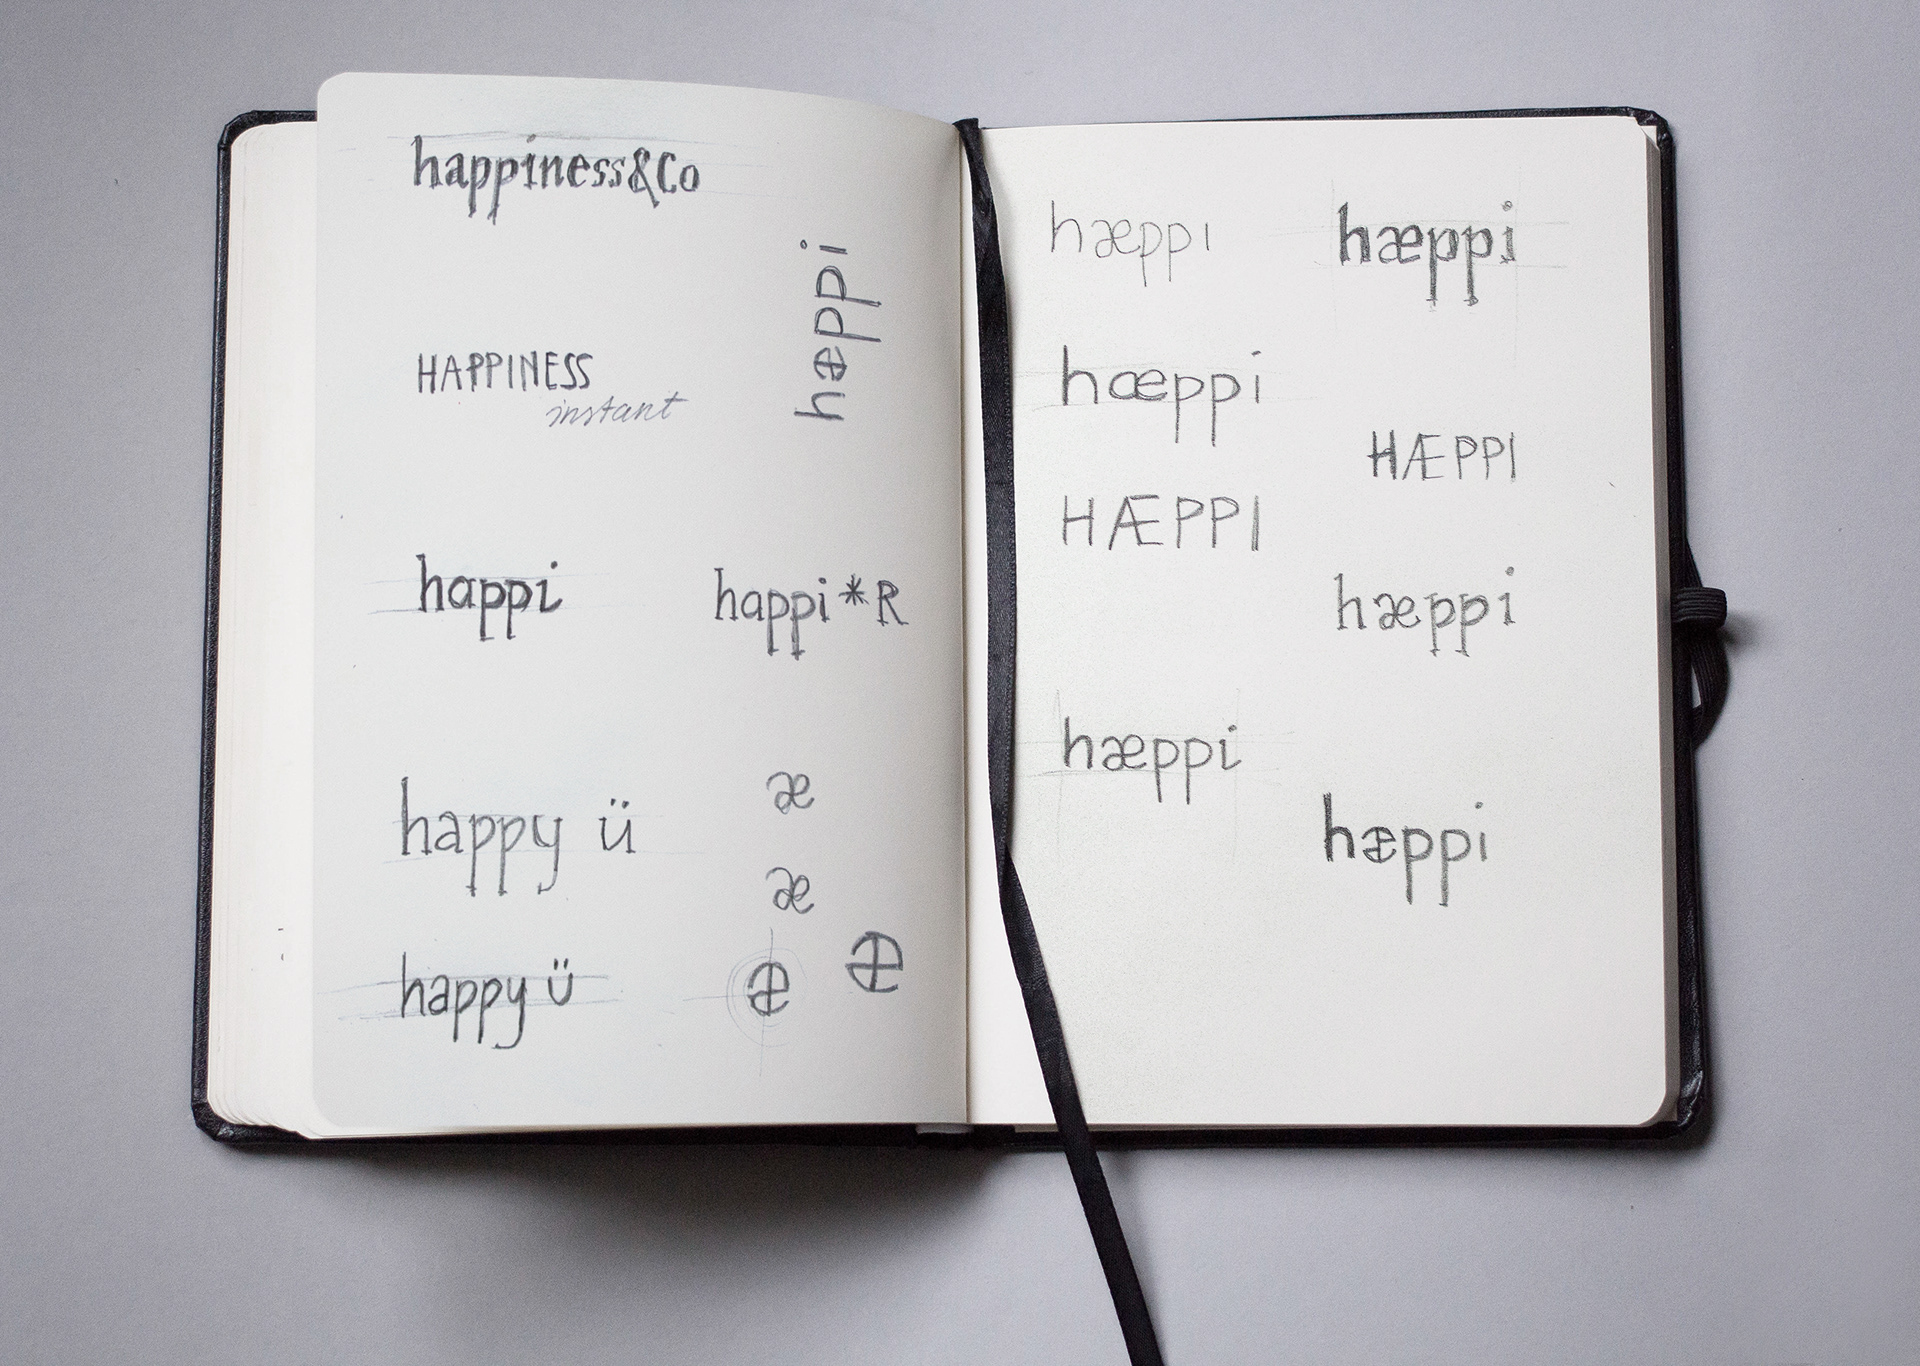 happiness&Co
hæppi
HAPPINESS
instant
happi
happi*R
happy ü
æ
æ
happy ü
æ
Æ
hæppi
hæppi
hœppi
HÆPPI
HÆPPI
hæppi
hæppi
hæppi